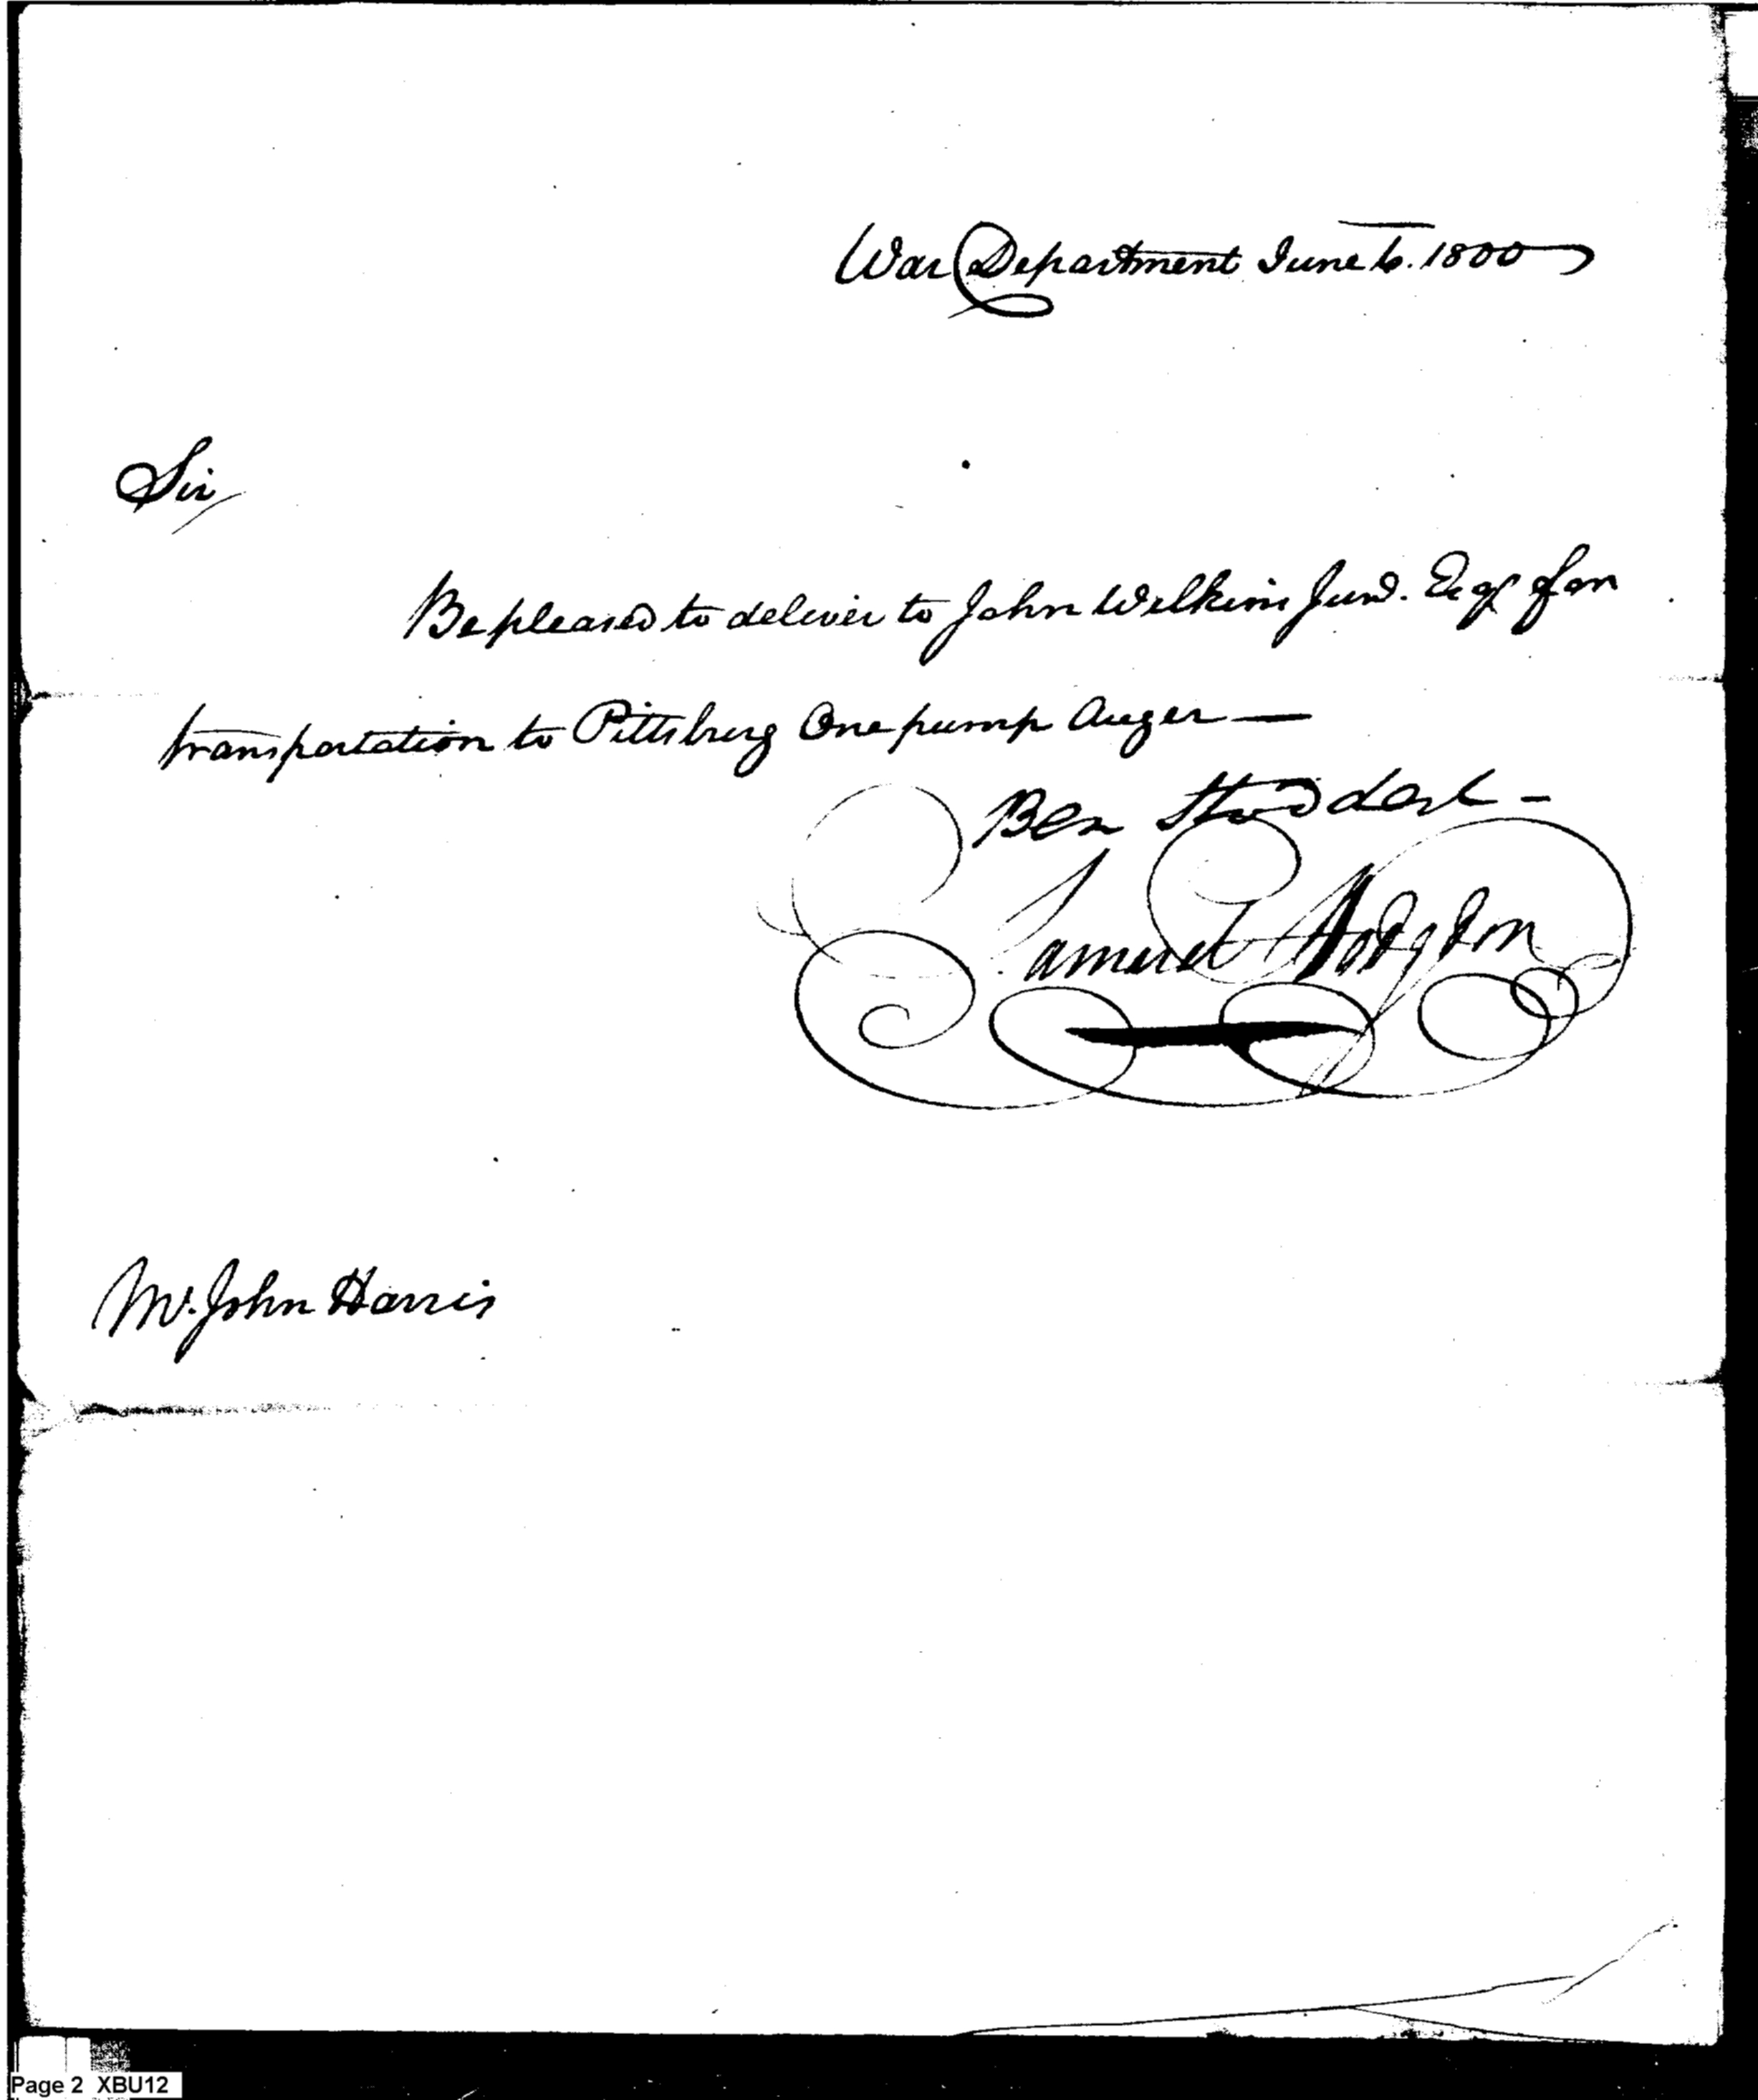 War Department June 6. 1800
Sir
Be pleased to deliver to John Wilkins Junr. Esqr for
transportation to Pittsburg One pump Auger —
Ben Stoddert -
Samuel Hodgdon
Mr. John Harris
Page 2 XBU12